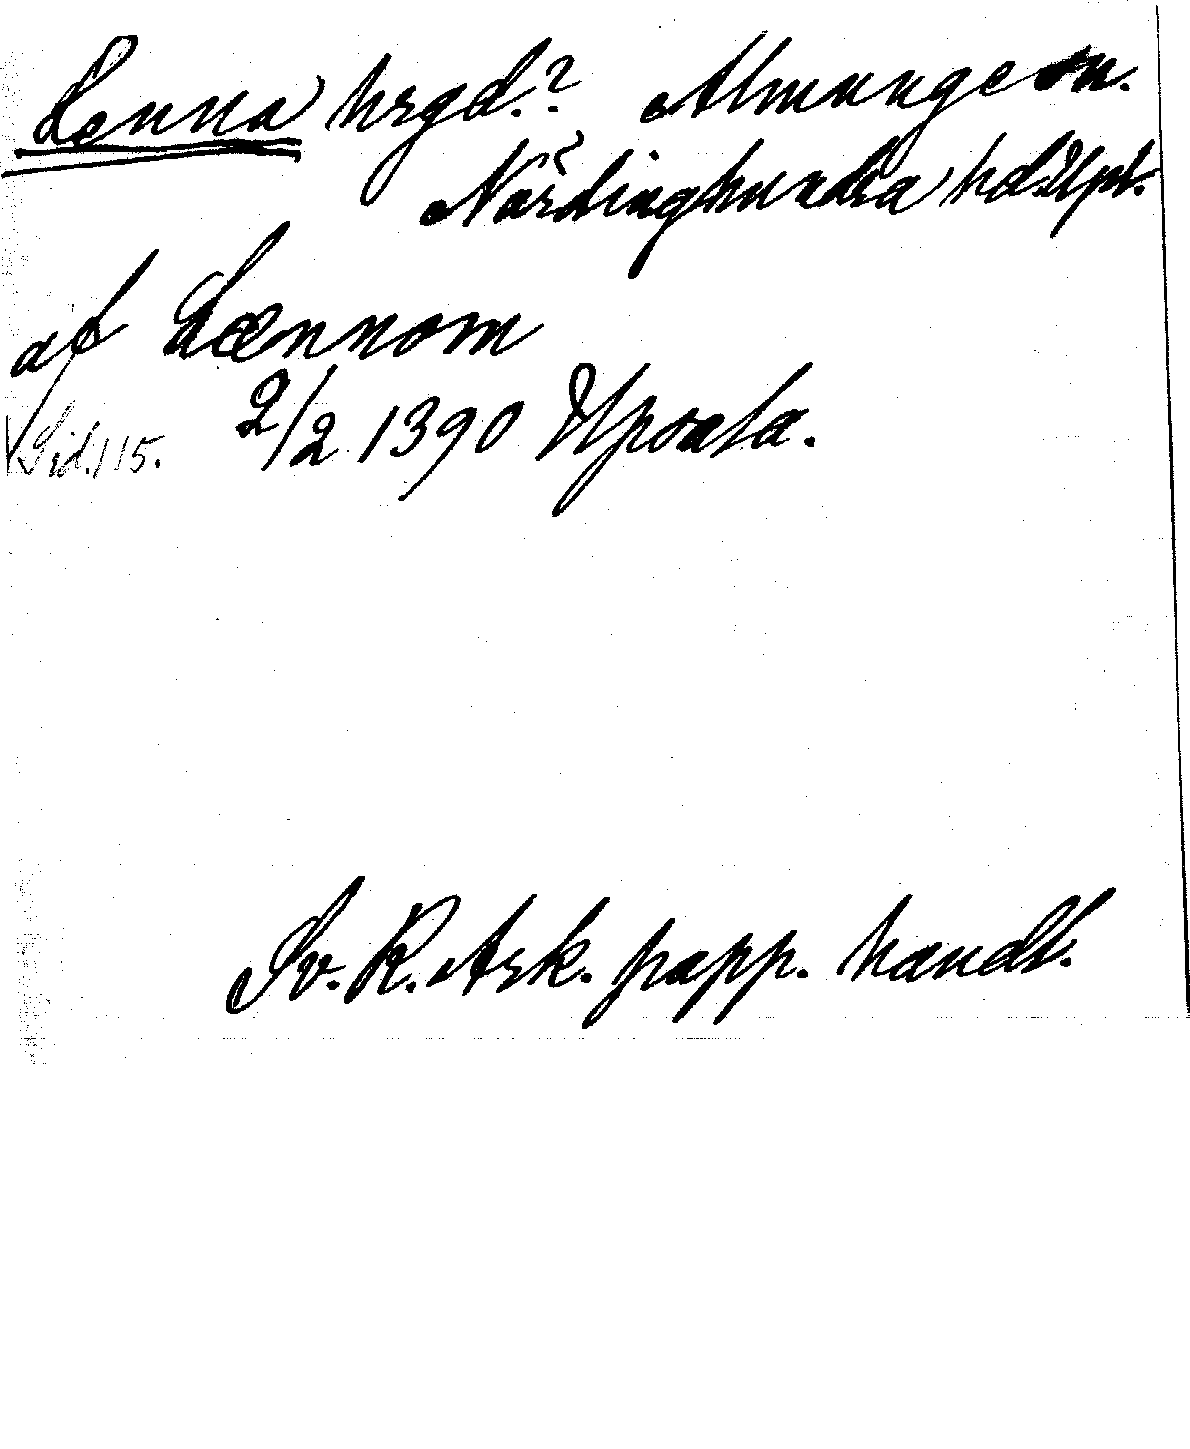 Lenna hrgd.? Almunge sn.
Närdinghundra hd. Upl.
af Lænnom
2/2 1390 Upsala.
Sid. 115.
Sv. R. Ark. papp. handl.